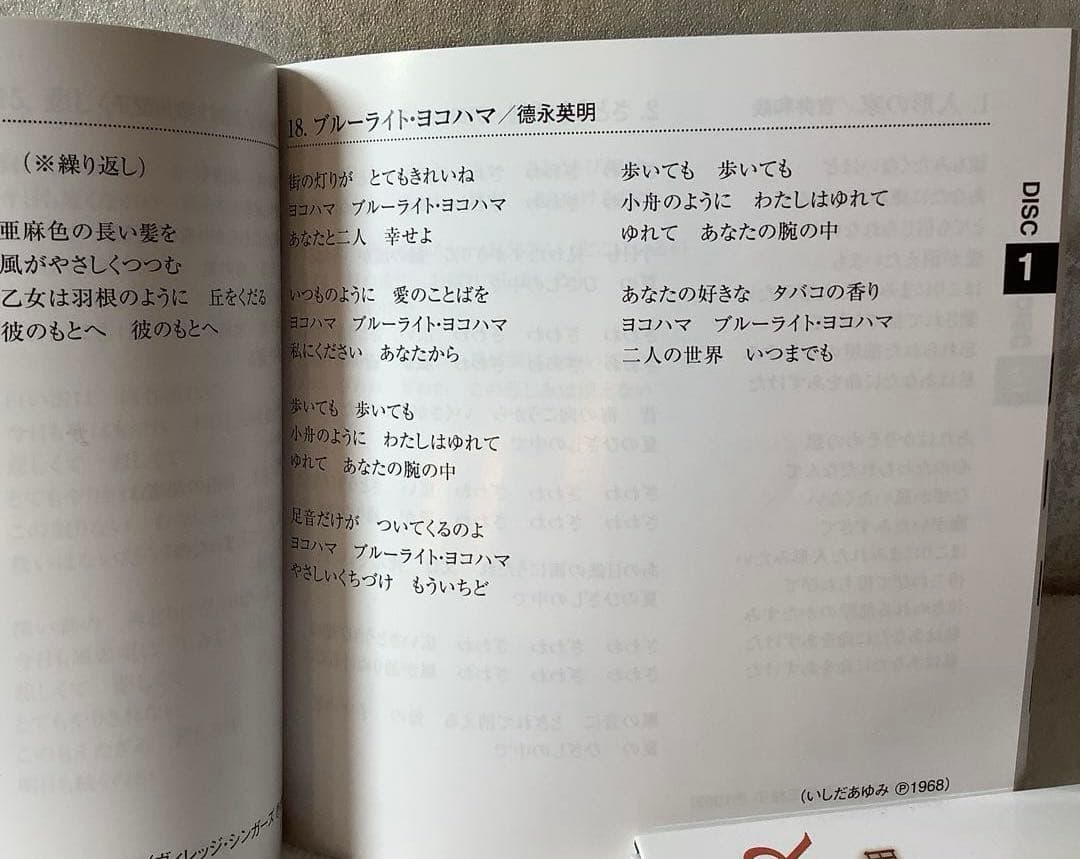 (※繰り返し)
亜麻色の長い髪を
風がやさしくつつむ
乙女は羽根のように 丘をくだる
彼のもとへ 彼のもとへ
ヴィレッジ・シンガーズ
18. ブルーライト・ヨコハマ/德永英明
街の灯りが とてもきれいね
ヨコハマ ブルーライト・ヨコハマ
あなたと二人 幸せよ
いつものように 愛のことばを
ヨコハマ ブルーライト・ヨコハマ
私にください あなたから
歩いても 歩いても
小舟のように わたしはゆれて
ゆれて あなたの腕の中
足音だけが ついてくるのよ
ヨコハマ ブルーライト・ヨコハマ
やさしいくちづけ もういちど
歩いても 歩いても
小舟のように わたしはゆれて
ゆれて あなたの腕の中
あなたの好きな タバコの香り
ヨコハマ ブルーライト・ヨコハマ
二人の世界 いつまでも
(いしだあゆみ ℗1968)
DISC
1